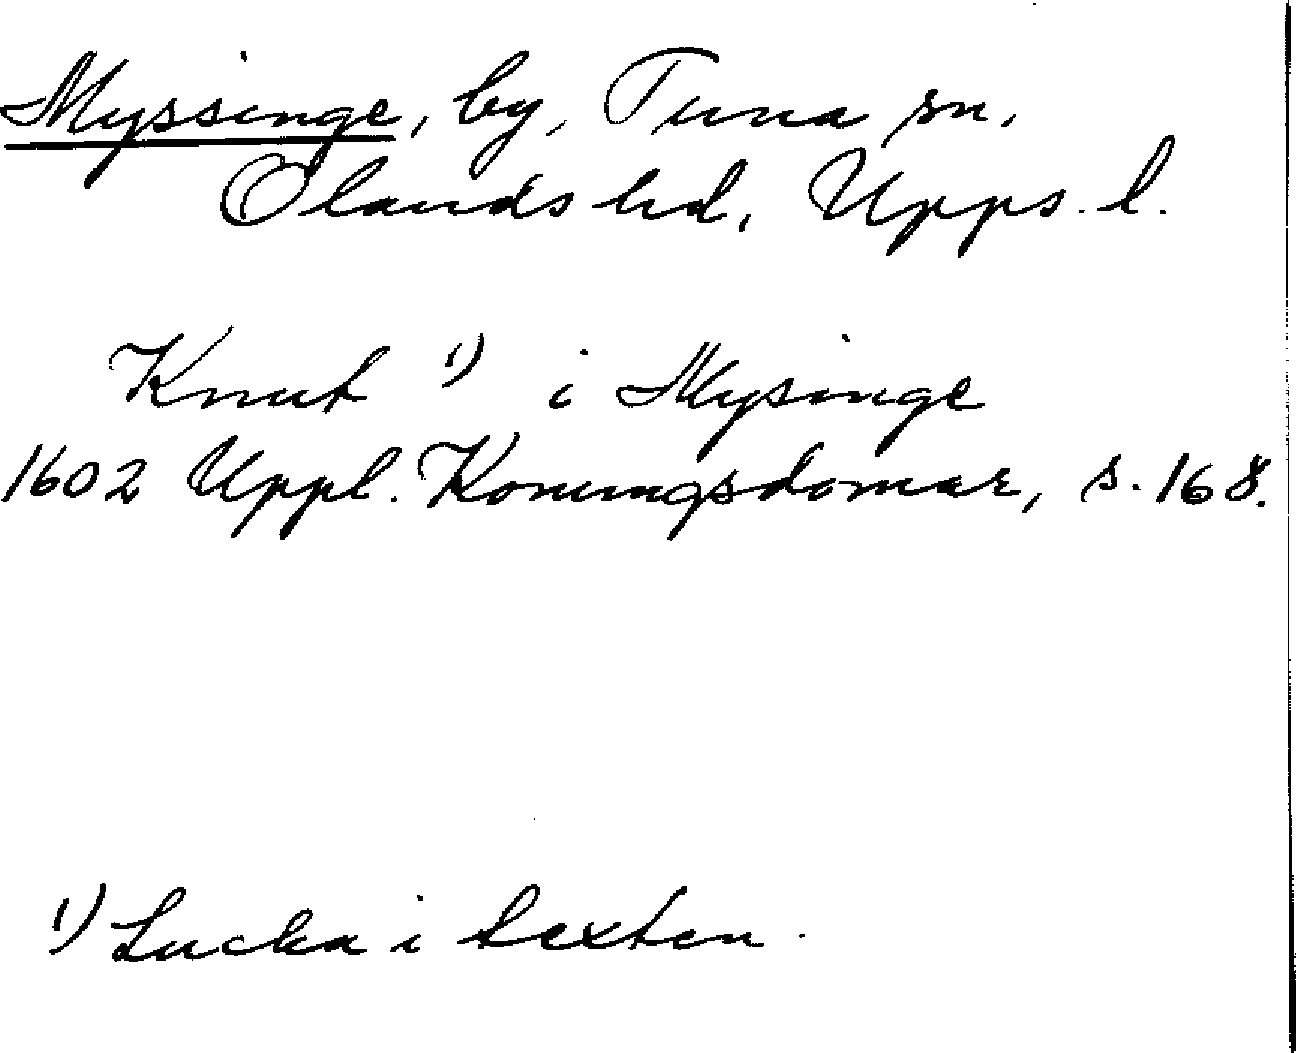 Myssinge, by, Tuna sn.
Olands hd, Upps. l.
Knut ¹) i Mysinge
1602 Uppl. Konungsdomar, s. 168.
¹) Lucka i texten.